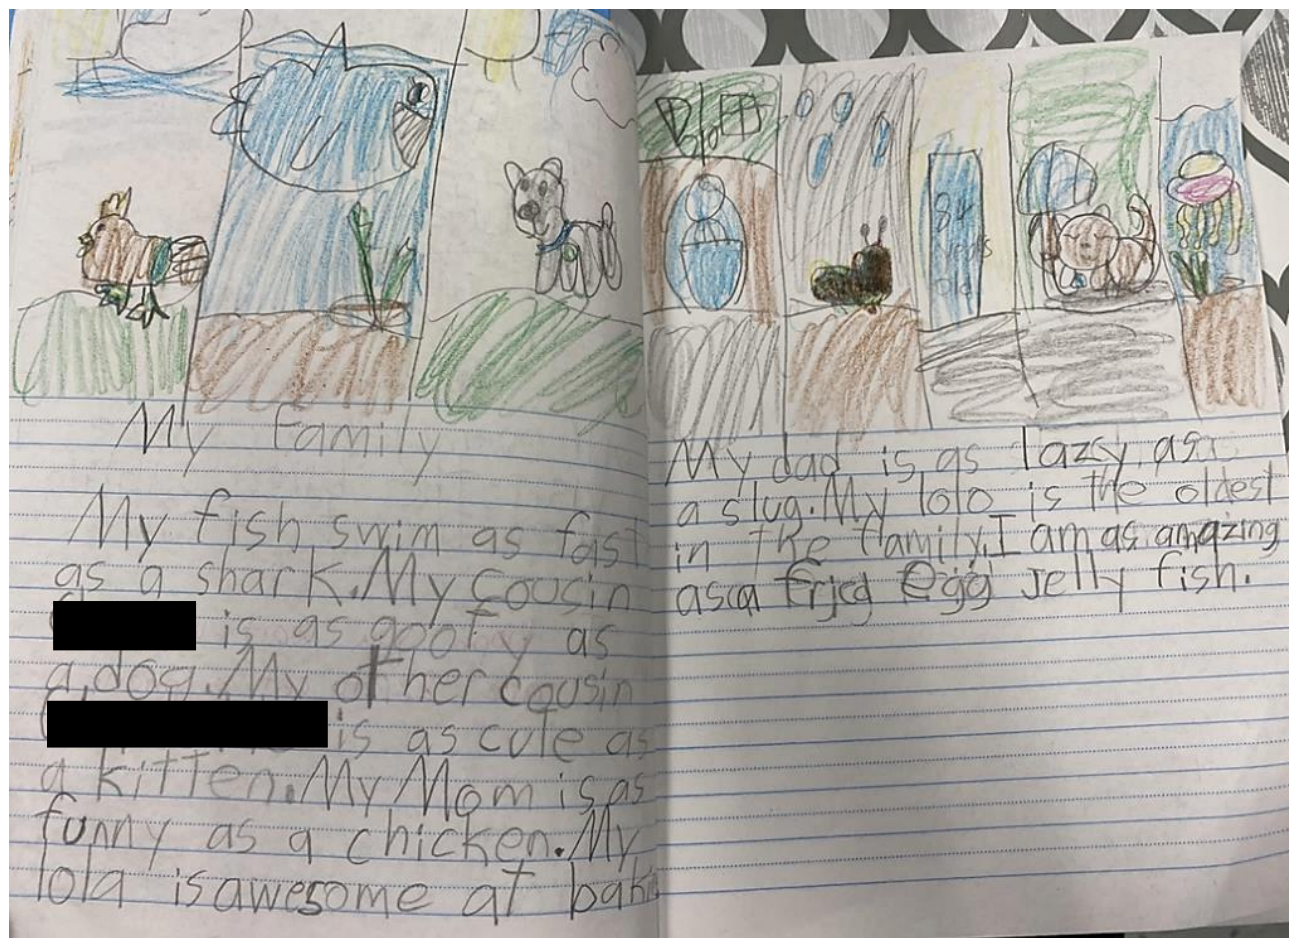 My family
My fish swim as fast
as a shark. My cousin
is as goofy as
a dog. My other cousin
is as cute as
a kitten. My Mom is as
funny as a chicken. My
lola is awesome at
84
years
old
My dad is as lazsy as
a slug. My lolo is the oldest
in the family. I am as amazing
as a fried egg Jelly fish.